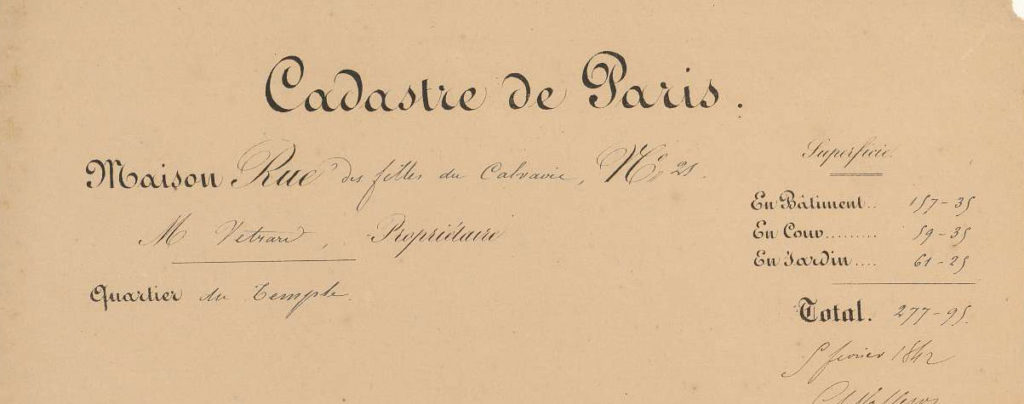 Cadastre de Paris.
Maison Rue des filles du Calvaire, N°
M Propriétaire
Quartier du Temple.
Superficie.
En Bâtiment.. 157-35
En Cour......... 59-35
En Jardin.... 61-25
Total. 277-95.
5 février 1842